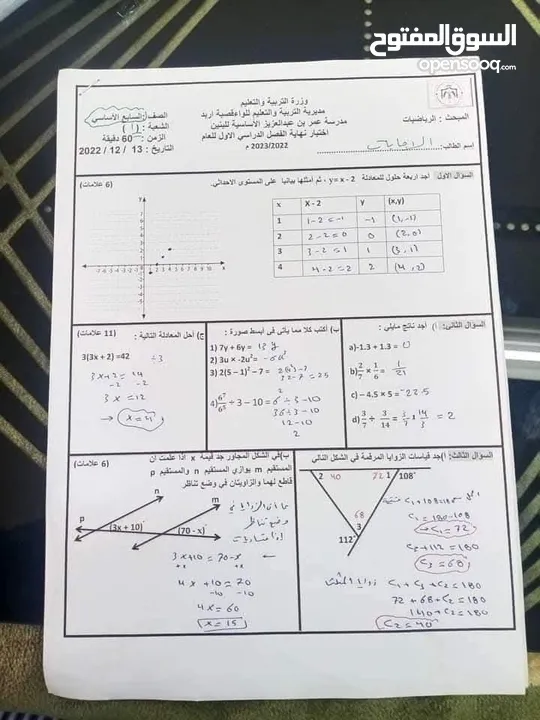 السوق المفتوح
opensooq.com
وزارة التربية والتعليم
مديرية التربية والتعليم للواءقصبة اربد
مدرسة عمر بن عبدالعزيز الأساسية للبنين
اختبار نهاية الفصل الدراسي الاول للعام
2023/2022 م
المبحث : الرياضيات
اسم الطالب:
الصف: السابع الأساسي
الشعبة : ( أ )
الزمن : 60 دقيقة
التاريخ : 13 / 12 / 2022
السؤال الاول : أجد اربعة حلول للمعادلة y = x - 2 ، ثم أمثلها بيانيا على المستوى الاحداثي. (6 علامات)
x X - 2 y (x,y)
1 1-2=-1 -1 (1,-1)
2 2-2=0 0 (2,0)
3 3-2=1 1 (3,1)
4 4-2=2 2 (4,2)
السؤال الثاني: أ) أجد ناتج مايلي :
a)-1.3 + 1.3 = 0
b) 2/7 × 1/6 = 1/21
c) – 4.5 × 5 = -22.5
d) 3/7 ÷ 3/14 = 3/7 × 14/3 = 2
ب) أكتب كلا مما يأتي في أبسط صورة :
1) 7y + 6y = 13y
2) 3u × -2u² = -6u³
3) 2(5 – 1)² – 7 = 2(4)²-7
32-7=25
4) 6⁷/6⁵ ÷ 3 – 10 = 6² ÷ 3-10
36÷3-10
12-10
2
ج) أحل المعادلة التالية : (11 علامات)
3(3x + 2) =42 ÷3
3x+2=14
-2 -2
3x = 12
→ x=4
السؤال الثالث: أ)جد قياسات الزوايا المرقمة في الشكل التالي
2 40 72 1 108°
68
3
112°
C1+108=180
C1=180-108
→ C1=72
C3+112=180
C3=68
C1+C3+C2=180
72+68+C2=180
140+C2=180
C2=40
ب)في الشكل المجاور جد قيمة x اذا علمت ان (6 علامات)
المستقيم m يوازي المستقيم n والمستقيم p
قاطع لهما والزاويتان في وضع تناظر
n
m
p
(3x + 10)°
(70 - x)°
بما أن الزوايا في
وضع تناظر
3x+10=70-x
+x +x
4x+10=70
-10 -10
4x=60
x=15